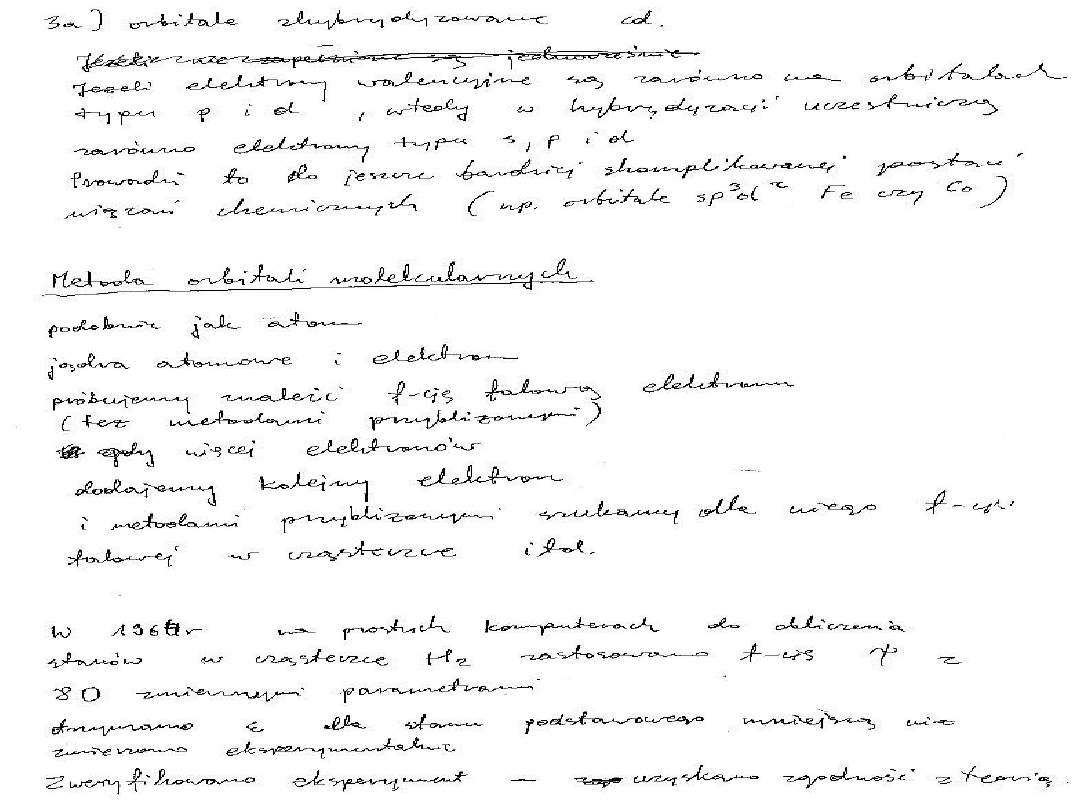 3a) orbitale zhybrydyzowane cd.
Jeżeli nie zapełnione są jednocześnie
Jeżeli elektrony walencyjne są zarówno na orbitalach
typu p i d , wtedy w hybrydyzacji uczestniczą
zarówno elektrony typu s, p i d
Prowadzi to do jeszcze bardziej skomplikowanej postaci
wiązań chemicznych (np. orbitale sp³d² Fe czy Co)
Metoda orbitali molekularnych
podobnie jak atom
jądra atomowe i elektron
próbujemy znaleźć f-cję falową elektronu
(też metodami przybliżonymi)
gdy więcej elektronów
dodajemy kolejny elektron
i metodami przybliżonymi szukamy dla niego f-cji
falowej w cząsteczce itd.
W r na prostych komputerach do obliczenia
stanów w cząsteczce H₂ zastosowano f-cję Ψ z
80 zmiennymi parametrami
otrzymano E dla stanu podstawowego mniejszą niż
zmierzono eksperymentalnie
Zweryfikowano eksperyment – uzyskano zgodność z teorią.